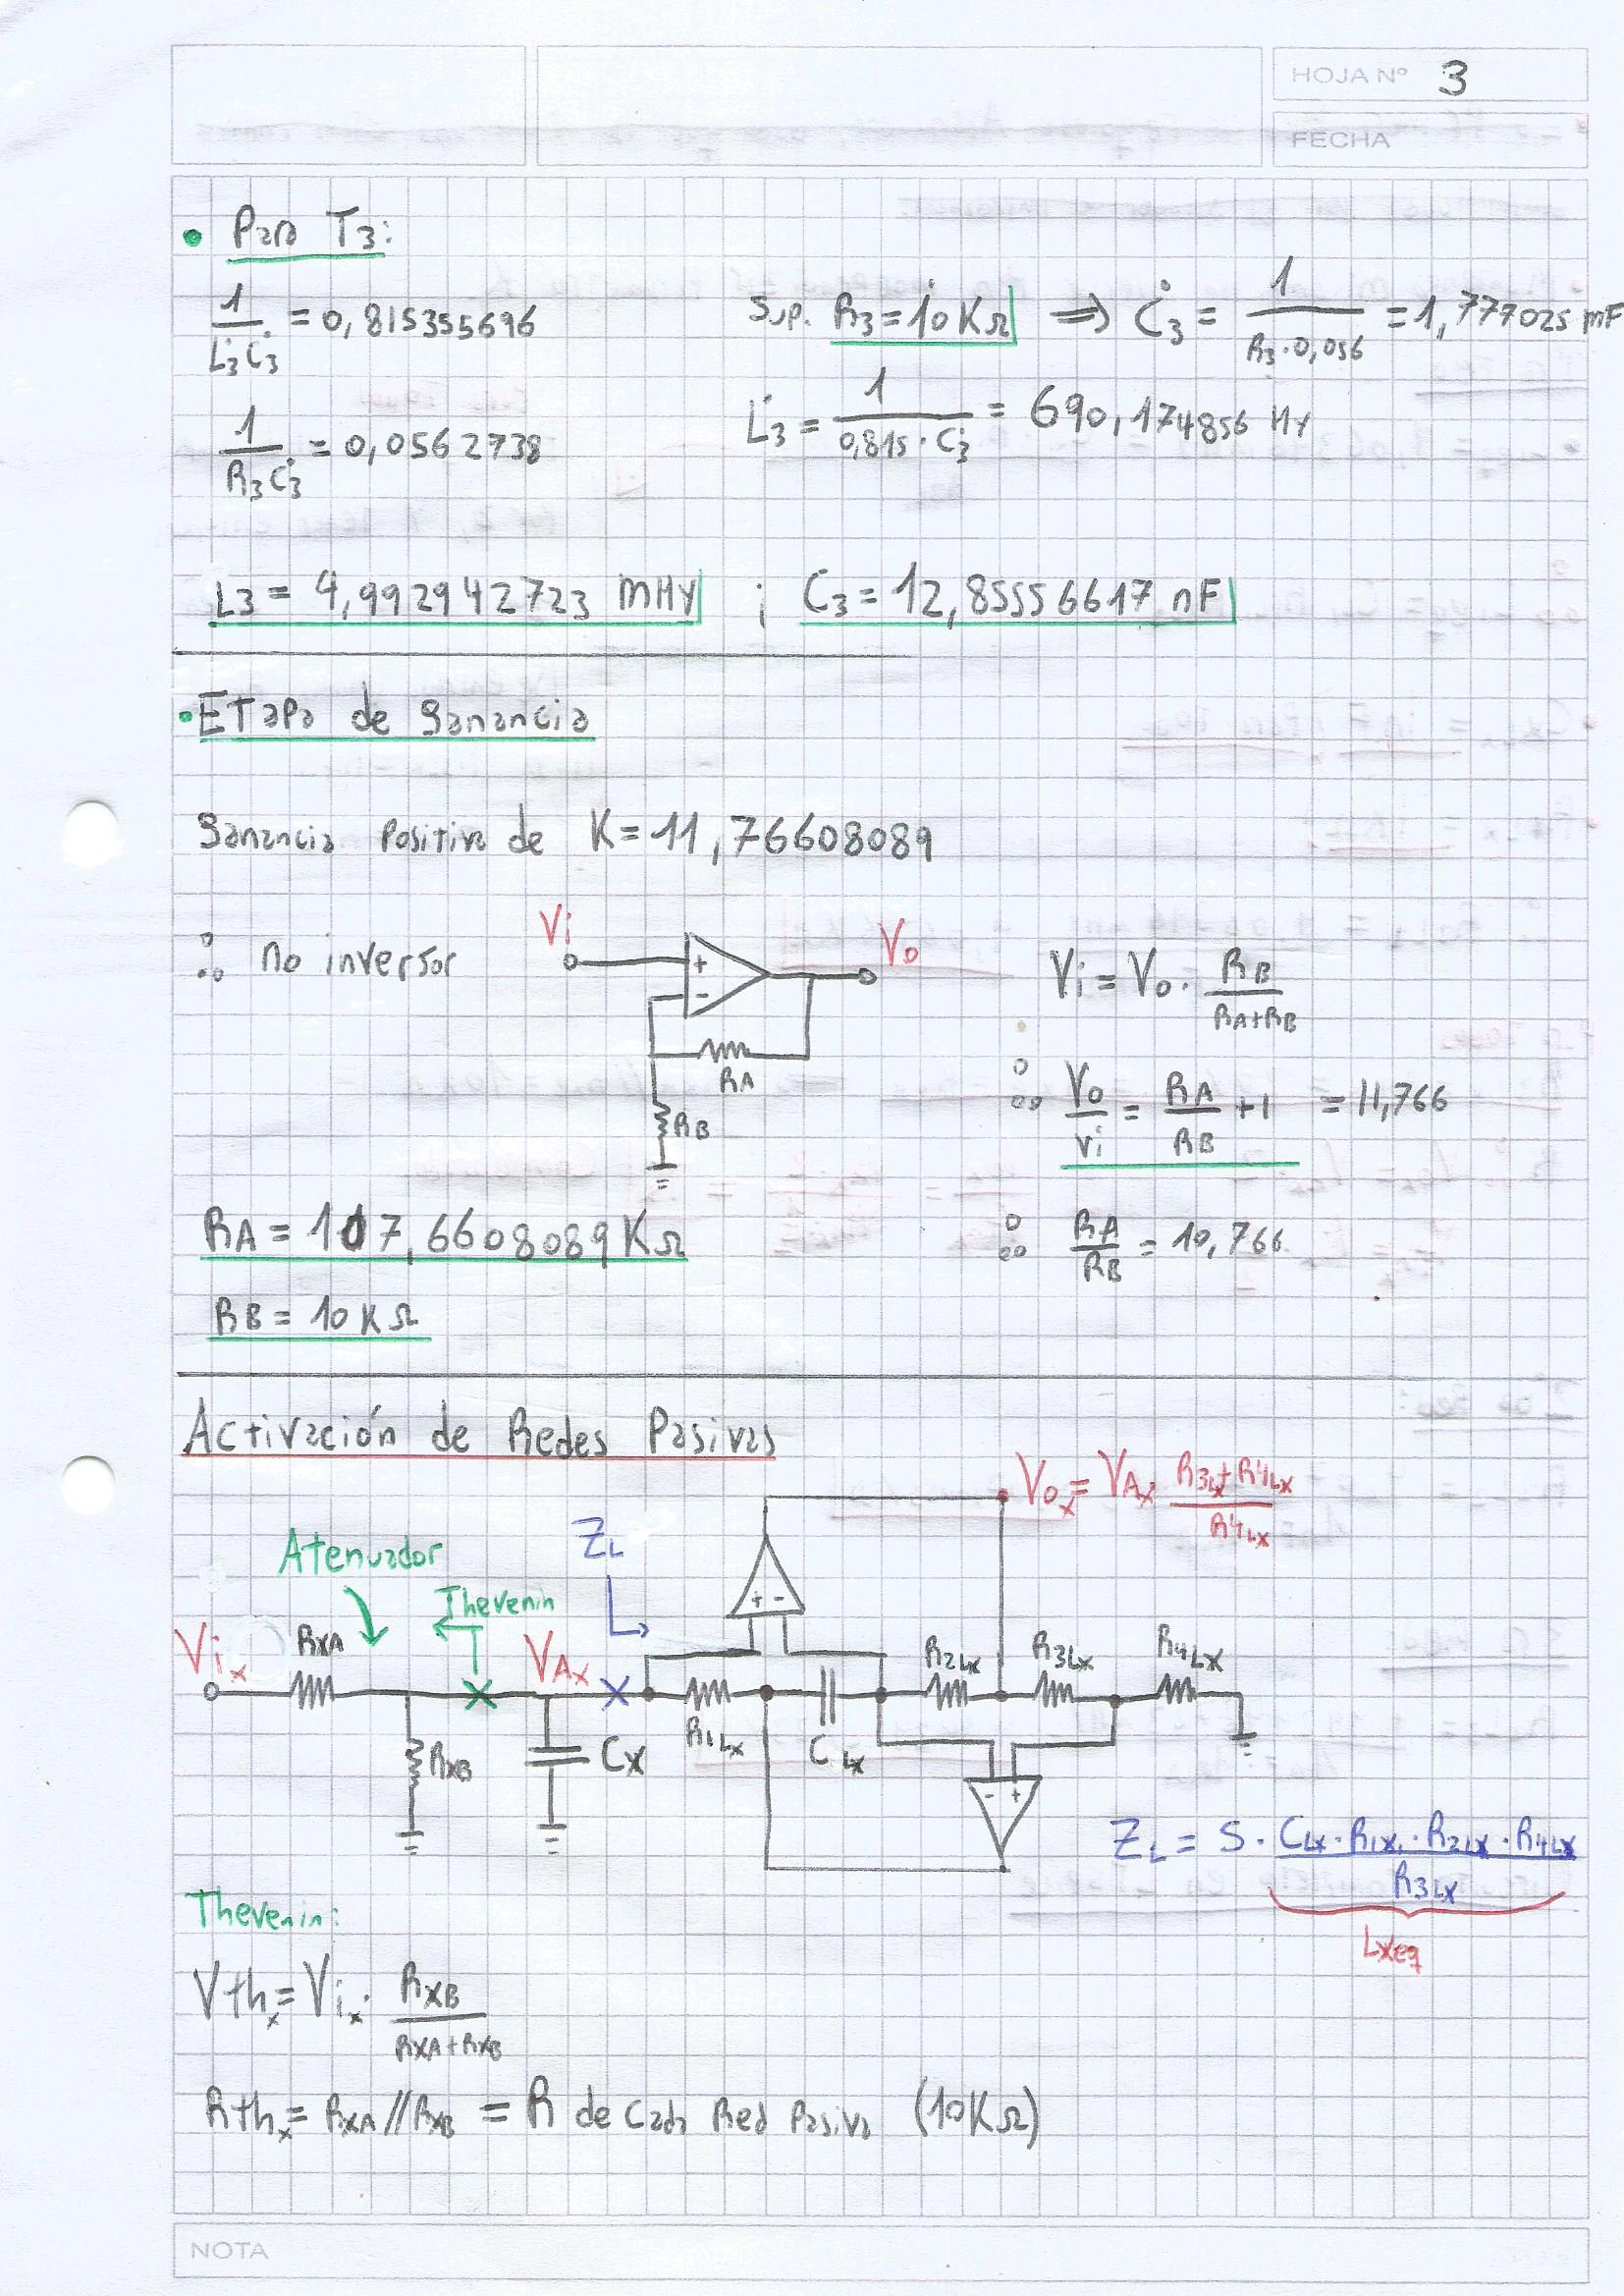 HOJA Nº 3
FECHA
• Para T3:
1/(L̇3Ċ3) = 0,815355696
Sup. R3 = 10 KΩ ⟹ Ċ3 = 1/(R3·0,056) = 1,777025 mF
1/(R3Ċ3) = 0,0562738
L̇3 = 1/(0,815·Ċ3) = 690,174856 Hy
L3 = 4,992942723 mHy ; C3 = 12,85556617 nF
• Etapa de Ganancia
Ganancia Positiva de K = 11,76608089
∴ no inversor
Vi
Vo
+
-
RA
RB
Vi = Vo · RB/(RA+RB)
∴ Vo/Vi = RA/RB + 1 = 11,766
RA = 107,6608089 KΩ
∴ RA/RB = 10,766
RB = 10 KΩ
Activación de Redes Pasivas
Vox = VAx · (R3Lx+R4Lx)/R4Lx
Atenuador
ZL
Thevenin
+ -
Vix
RXA
VAx
R2Lx
R3Lx
R4Lx
RXB
Cx
R1Lx
CLx
- +
ZL = S · (CLx·R1x·R2Lx·R4Lx)/R3Lx
Lxeq
Thevenin:
Vthx = Vix · RXB/(RXA+RXB)
Rthx = RXA//RXB = R de Cada Red Pasiva (10KΩ)
NOTA